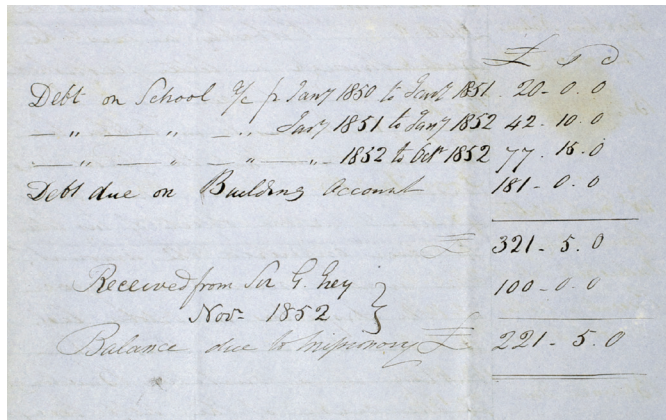 £ s d
Debt on School a/c fr Jany 1850 to Jany 1851. 20 - 0. 0
— " — " — " Jany 1851 to Jany 1852 42. 10. 0
— " — " — " — " 1852 to Octr 1852 77. 15. 0
Debt due on Building Account 181 - 0. 0
£ 321 - 5. 0
Received from Sir G. Grey
Novr 1852 } 100 - 0. 0
Balance due to Missionary £ 221 - 5. 0